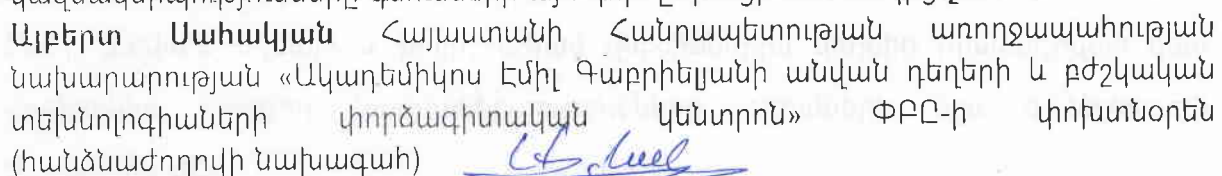 Ալբերտ Սահակյան Հայաստանի Հանրապետության առողջապահության
նախարարության «Ակադեմիկոս Էմիլ Գաբրիելյանի անվան դեղերի և բժշկական
տեխնոլոգիաների փորձագիտական կենտրոն» ՓԲԸ-ի փոխտնօրեն
(հանձնաժողովի նախագահ)